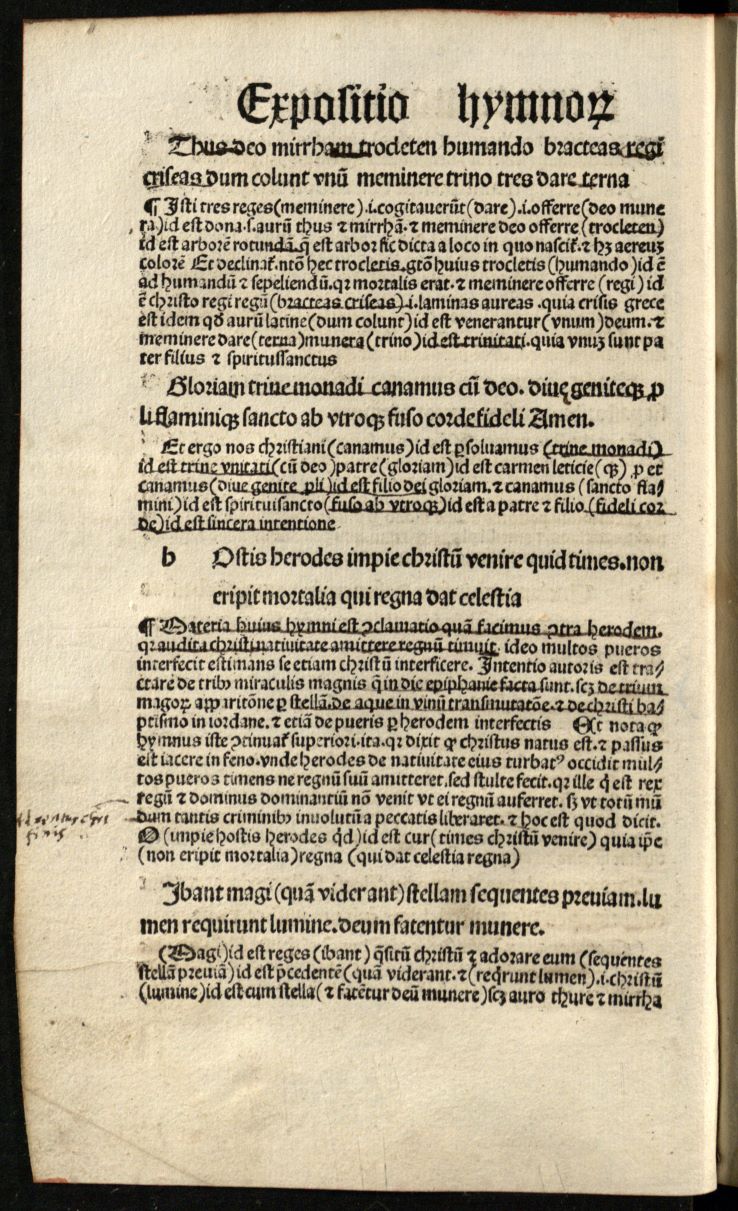 Expositio hymnoꝝ
Thus deo mirrham trocleten humando bracteas regi
criseas dum colunt vnū meminere trino tres dare terna
¶ Isti tres reges(meminere).i.cogitauerūt(dare).i.offerre(deo mune
ra)id est dona.s.aurū thus ⁊ mirrhā.⁊ meminere deo offerre (trocleten)
id est arborē rotundā.q̄ est arbor sic dicta a loco in quo nascit̄.⁊ hꝫ aereuꝫ
colorē Et declinat̄.ntō hec trocletis.gtō huius trocletis (humando)id ē
ad humandū ⁊ sepeliendū.qꝛ mortalis erat.⁊ meminere offerre (regi) id
ē christo regi regū(bracteas criseas).i.laminas aureas.quia crisis grece
est idem qđ aurū latine(dum colunt)id est venerantur(vnum)deum.⁊
meminere dare(terna)munera(trino)id est trinitati.quia vnuꝫ sunt pa
ter filius ⁊ spiritussanctus
Gloriam trine monadi canamus cū deo. diuę geniteqꝫ ꝓ
li flaminiqꝫ sancto ab vtroqꝫ fuso corde fideli Amen.
Et ergo nos christiani(canamus)id est ꝑsoluamus (trine monadi)
id est trine vnitati(cū deo)patre(gloriam)id est carmen leticie(qꝫ) ꝓ et
canamus(diue genite ꝓli)id est filio dei gloriam.⁊ canamus (sancto fla⸗
mini)id est spirituisancto(fuso ab vtroqꝫ)id est a patre ⁊ filio (fideli cor
de)id est sincera intentione
h Ostis herodes impie christū venire quid times.non
eripit mortalia qui regna dat celestia
¶ Materia huius hymni est ꝯclamatio quā facimus ꝯtra herodem.
qꝛ audita christi natiuitate amittere regnū timuit. ideo multos pueros
interfecit estimans se etiam christū interficere. Intentio autoris est tra⸗
ctare de tribꝰ miraculis magnis q̄ in die epiphanie facta sunt.scꝫ de trium
magoꝝ apparitōne ꝑ stellā.de aque in vinū transmutatōe.⁊ de christi ba⸗
ptismo in iordane.⁊ etiā de pueris ꝑ herodem interfectis Et nota ꝙ
hymnus iste ꝯtinuat̄ superiori.ita.qꝛ dixit ꝙ christus natus est.⁊ passus
est iacere in feno.vnde herodes de natiuitate eius turbatꝰ occidit mul⸗
tos pueros timens ne regnū suū amitteret.sed stulte fecit.qꝛ ille q̇ est rex
regū ⁊ dominus dominantiū nō venit vt ei regnū auferret. sꝫ vt totū mū
dum tantis criminibꝰ inuolutū a peccatis liberaret.⁊ hoc est quod dicit.
O (impie hostis herodes qd)id est cur(times christū venire) quia ip̄e
(non eripit mortalia)regna (qui dat celestia regna)
Ibant magi(quā viderant)stellam sequentes preuiam.lu
men requirunt lumine.deum fatentur munere.
(Magi)id est reges (ibant) q̄situ christū ⁊ adorare eum (sequentes
stellā preuiā)id est p̄cedentē(quā viderant.⁊(reqrunt lumen).i.christū
(lumine)id est cum stella(⁊ fatētur deū munere)scꝫ auro thure ⁊ mirrha